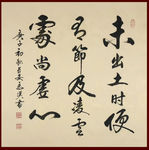 未出土时便
有節及凌雲
處尚虚心
庚子初秋
書